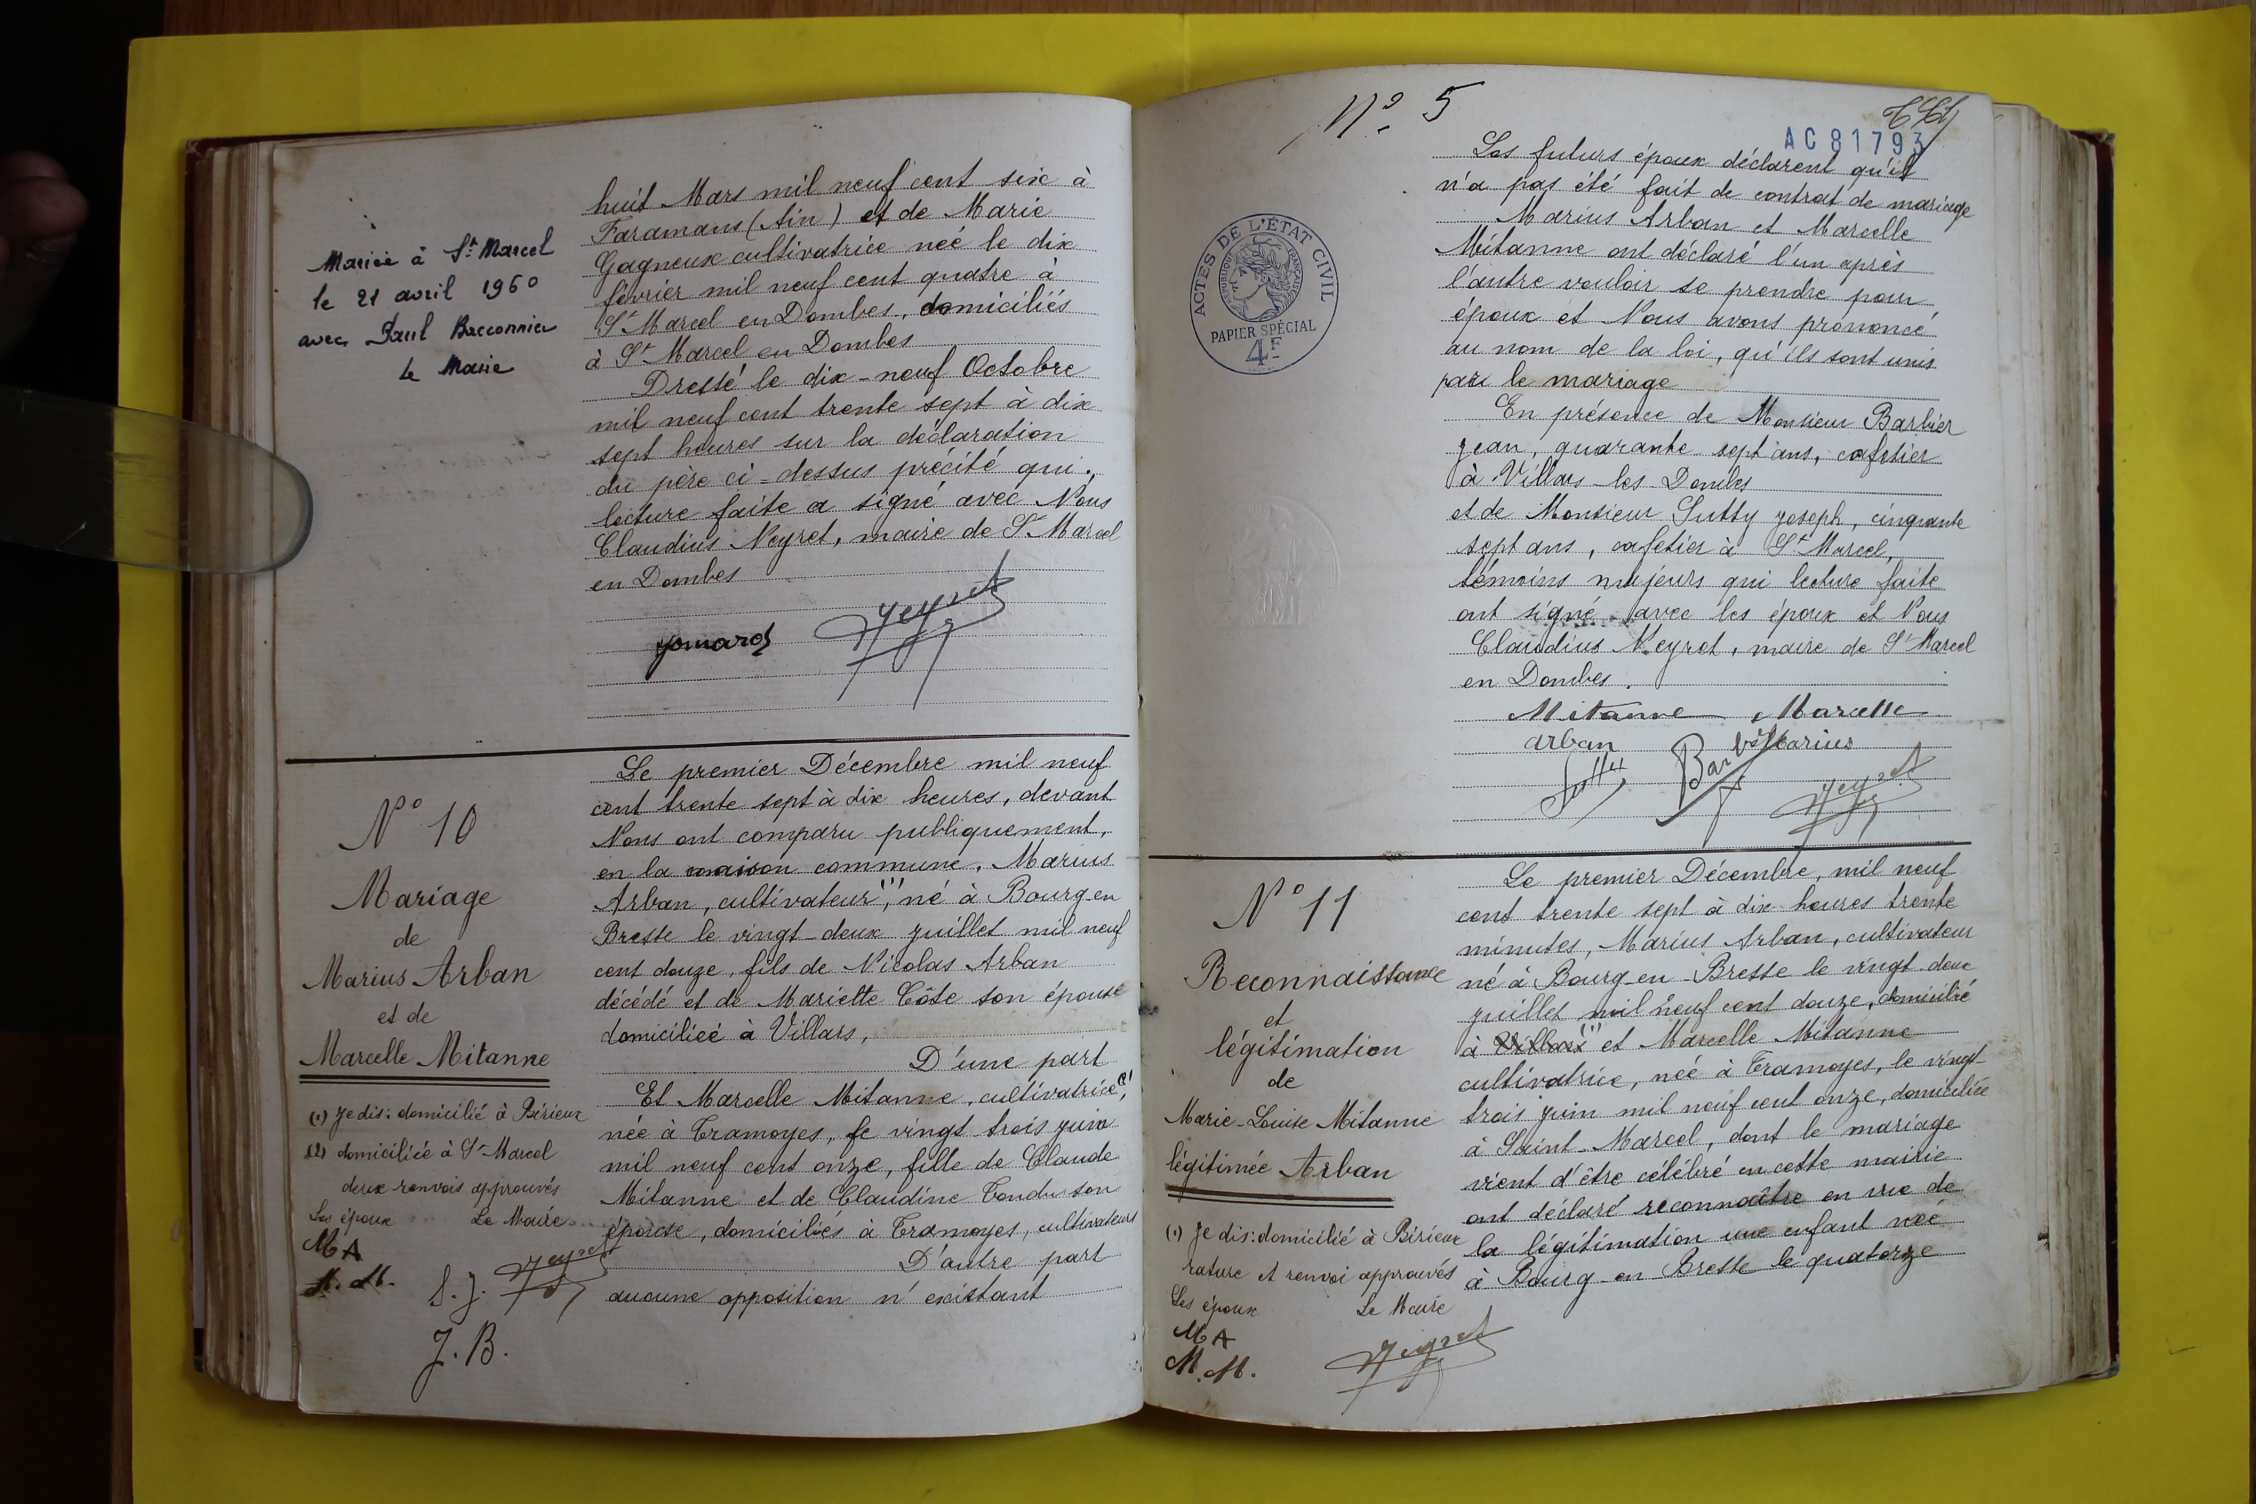 Mariée à St Marcel
le 21 avril 1960
avec Paul Bacconnier
Le Maire
huit Mars mil neuf cent six à
Faramans (Ain) et de Marie
Gagneux cultivatrice née le dix
février mil neuf cent quatre à
St Marcel en Dombes, domiciliés
à St Marcel en Dombes
Dressé le dix-neuf Octobre
mil neuf cent trente sept à dix
sept heures sur la déclaration
du père ci-dessus précité qui,
lecture faite a signé avec Nous
Claudius Neyret, maire de St Marcel
en Dombes
Neyret
N° 10
Mariage
de
Marius Arban
et de
Marcelle Mitanne
(1) Je dis: domicilié à Birieux
(2) domiciliée à St Marcel
deux renvois approuvés
Les époux Le Maire
MA
M. M. S. J. Neyret
J. B.
Le premier Décembre mil neuf
cent trente sept à dix heures, devant
Nous ont comparu publiquement,
en la maison commune, Marius
Arban, cultivateur (1), né à Bourg en
Bresse le vingt-deux juillet mil neuf
cent douze, fils de Nicolas Arban
décédé et de Mariette Côte son épouse
domiciliée à Villars,
D'une part
Et Marcelle Mitanne, cultivatrice (2),
née à Tramoyes, le vingt trois juin
mil neuf cent onze, fille de Claude
Mitanne et de Claudine Tondu son
épouse, domiciliés à Tramoyes, cultivateurs
D'autre part
aucune opposition n'existant
N° 5
AC 81793
ACTES DE L'ÉTAT CIVIL
RÉPUBLIQUE FRANÇAISE
PAPIER SPÉCIAL
4F
Les futurs époux déclarent qu'il
n'a pas été fait de contrat de mariage
Marius Arban et Marcelle
Mitanne ont déclaré l'un après
l'autre vouloir se prendre pour
époux et Nous avons prononcé
au nom de la loi, qu'ils sont unis
par le mariage
En présence de Monsieur Barbier
Jean, quarante sept ans, cafetier
à Villars-les-Dombes
et de Monsieur Sutty Joseph, cinquante
sept ans, cafetier à St Marcel,
témoins majeurs qui lecture faite
ont signé avec les époux et Nous
Claudius Neyret, maire de St Marcel
en Dombes.
Mitanne Marcelle
Arban Marius
Sutty Barbier Neyret
N° 11
Reconnaissance
et
légitimation
de
Marie-Louise Mitanne
légitimée Arban
(1) Je dis: domicilié à Birieux
rature et renvoi approuvés
Les époux Le Maire
MA
M. M. Neyret
Le premier Décembre, mil neuf
cent trente sept à dix heures trente
minutes, Marius Arban, cultivateur
né à Bourg-en-Bresse le vingt-deux
juillet mil neuf cent douze, domicilié
à Villars (1) et Marcelle Mitanne
cultivatrice, née à Tramoyes, le vingt-
trois juin mil neuf cent onze, domiciliée
à Saint-Marcel, dont le mariage
vient d'être célébré en cette mairie
ont déclaré reconnaître en vue de
la légitimation une enfant née
à Bourg-en-Bresse le quatorze